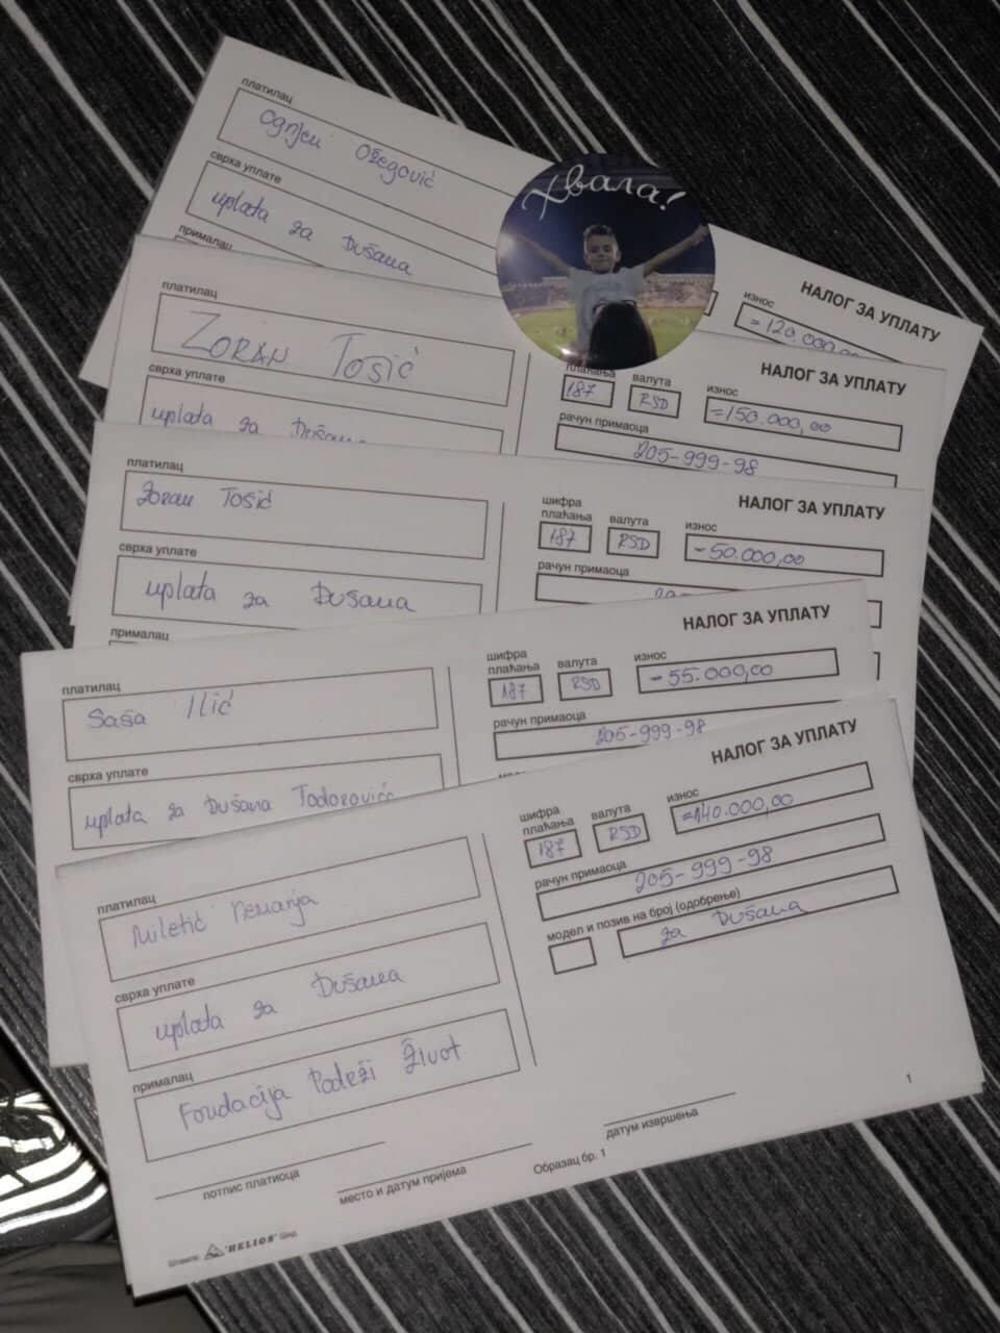 платилац
Ognjen Ožegović
сврха уплате
uplata za Dušana
прималац
НАЛОГ ЗА УПЛАТУ
износ
=120.000,
Хвала!
платилац
ZORAN TOSIĆ
сврха уплате
uplata za Dušana
НАЛОГ ЗА УПЛАТУ
плаћања
187
валута
RSD
износ
=150.000,00
рачун примаоца
205-999-98
платилац
Zoran Tosić
сврха уплате
uplata za Dušana
прималац
НАЛОГ ЗА УПЛАТУ
шифра
плаћања
187
валута
RSD
износ
=50.000,00
рачун примаоца
платилац
Saša Ilić
сврха уплате
uplata za Dušana Todorovića
НАЛОГ ЗА УПЛАТУ
шифра
плаћања
187
валута
RSD
износ
=55.000,00
рачун примаоца
205-999-98
платилац
Miletić Nemanja
сврха уплате
uplata za Dušana
прималац
Fondacija Podrži Život
потпис платиоца
место и датум пријема
НАЛОГ ЗА УПЛАТУ
шифра
плаћања
187
валута
RSD
износ
=140.000,00
рачун примаоца
205-999-98
модел и позив на број (одобрење)
za Dušana
1
датум извршења
Образац бр. 1
"HELIOS" Шид